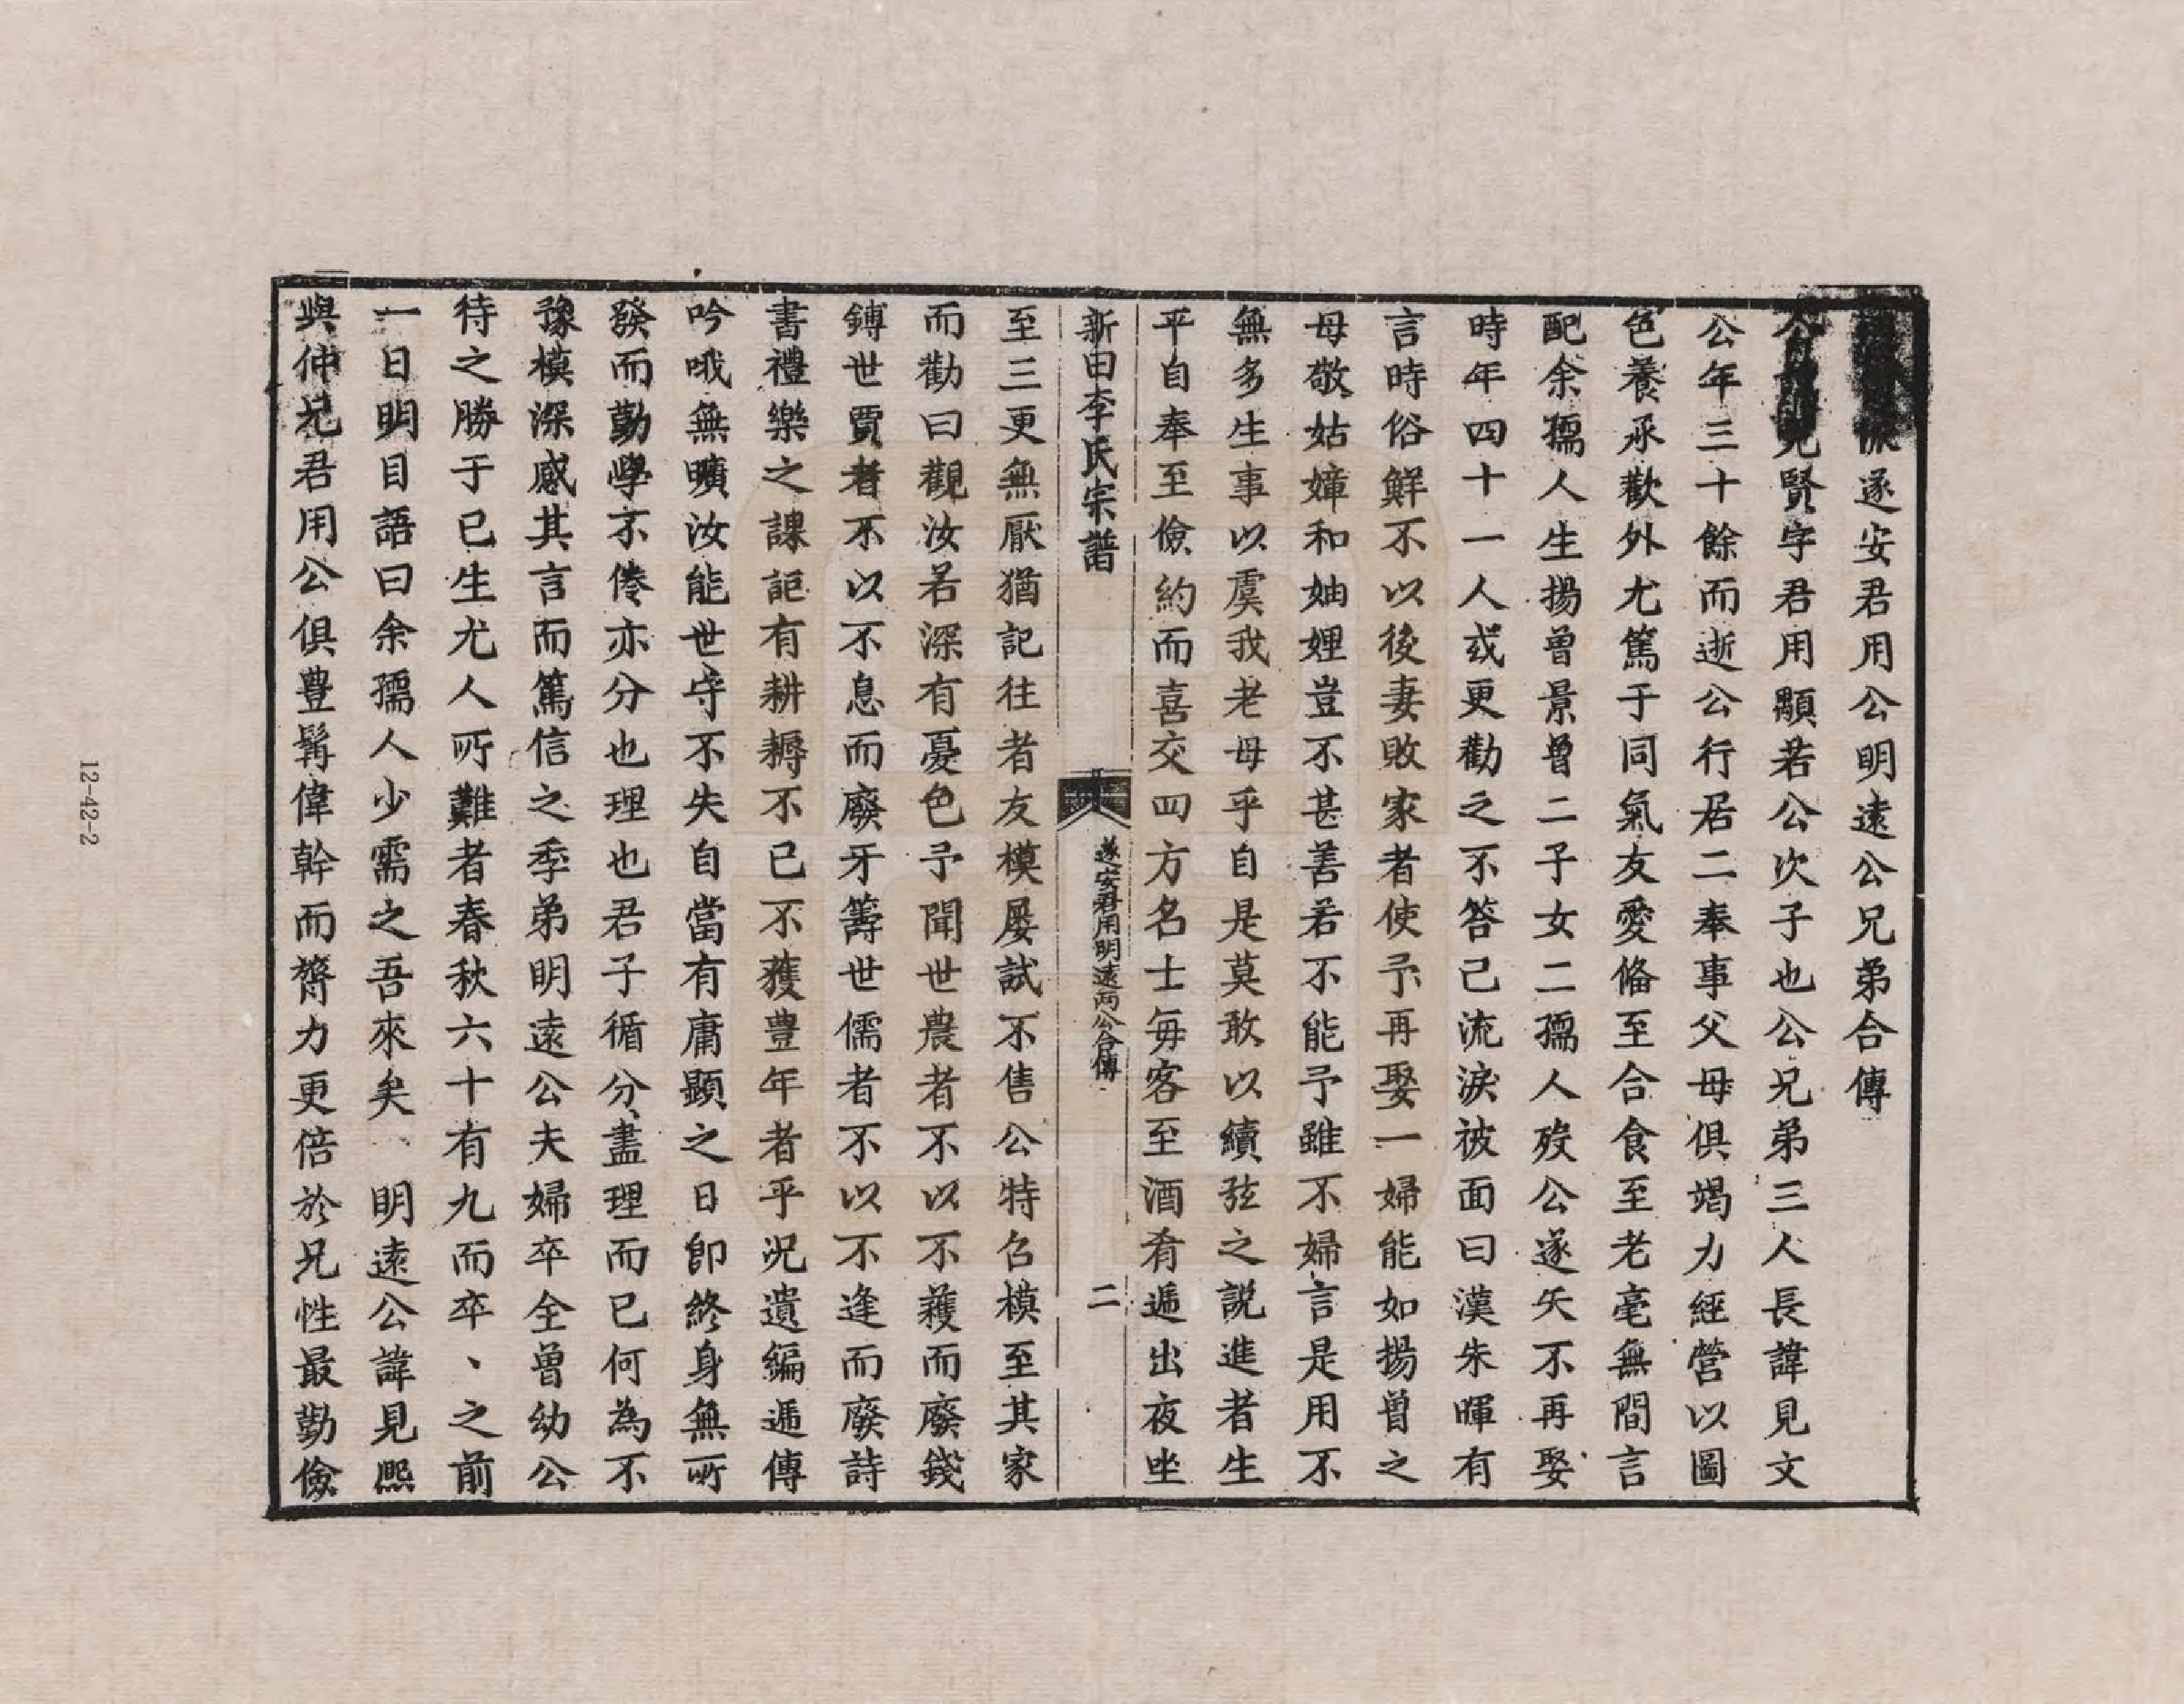 遂安君用公明遠公兄弟合傳
公見賢字君用顯若公次子也公兄弟三人長諱見文
公年三十餘而逝公行居二奉事父母俱竭力經營以圖
色養承歡外尤篤于同氣友愛偹至合食至老毫無間言
配余孺人生揚曾景曾二子女二孺人歿公遂矢不再娶
時年四十一人或更勸之不答己流淚被面曰漢朱暉有
言時俗鮮不以後妻敗家者使予再娶一婦能如揚曾之
母敬姑嫜和妯娌豈不甚善若不能予雖不婦言是用不
無多生事以虞我老母乎自是莫敢以續弦之說進者生
平自奉至儉約而喜交四方名士每客至酒肴遞出夜坐
新田李氏宗譜
遂安君用明遠兩公合傳
二
至三更無厭猶記往者友模屢試不售公特召模至其家
而勸曰觀汝若深有憂色予聞世農者不以不穫而廢錢
鎛世賈者不以不息而廢牙籌世儒者不以不逢而廢詩
書禮樂之課詎有耕耨不已不獲豊年者乎況遺編遞傳
吟哦無曠汝能世守不失自當有庸顯之日卽終身無所
發而勤學不倦亦分也理也君子循分盡理而已何為不
豫模深感其言而篤信之季弟明遠公夫婦卒全曾幼公
待之勝于已生尤人所難者春秋六十有九而卒、之前
一日明目語曰余孺人少需之吾來矣、明遠公諱見熙
與仲兄君用公俱豊髯偉幹而膂力更倍於兄性最勤儉
12-42-2